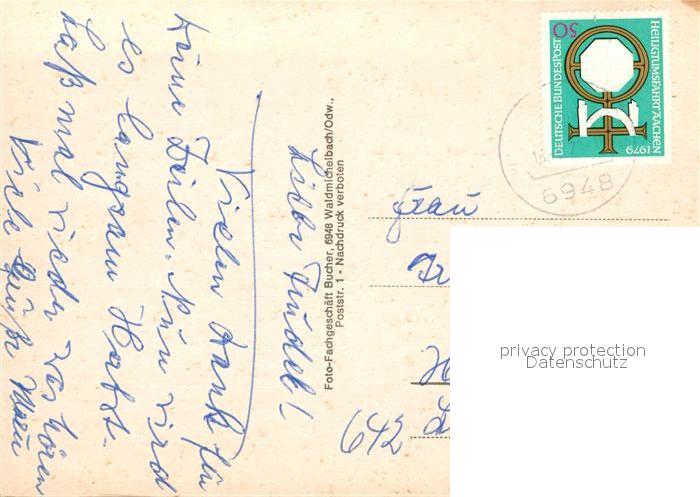 Liebe Trudel!
Vielen Dank für
Deine Zeilen. Nun wird
es langsam Herbst.
Laß mal wieder was hören
Viele Grüße
Foto-Fachgeschäft Bucher, 6948 Waldmichelbach/Odw.,
Poststr. 1 - Nachdruck verboten
DEUTSCHE BUNDESPOST
50
HEILIGTUMSFAHRT AACHEN
1979
6948
Frau
642
privacy protection
Datenschutz